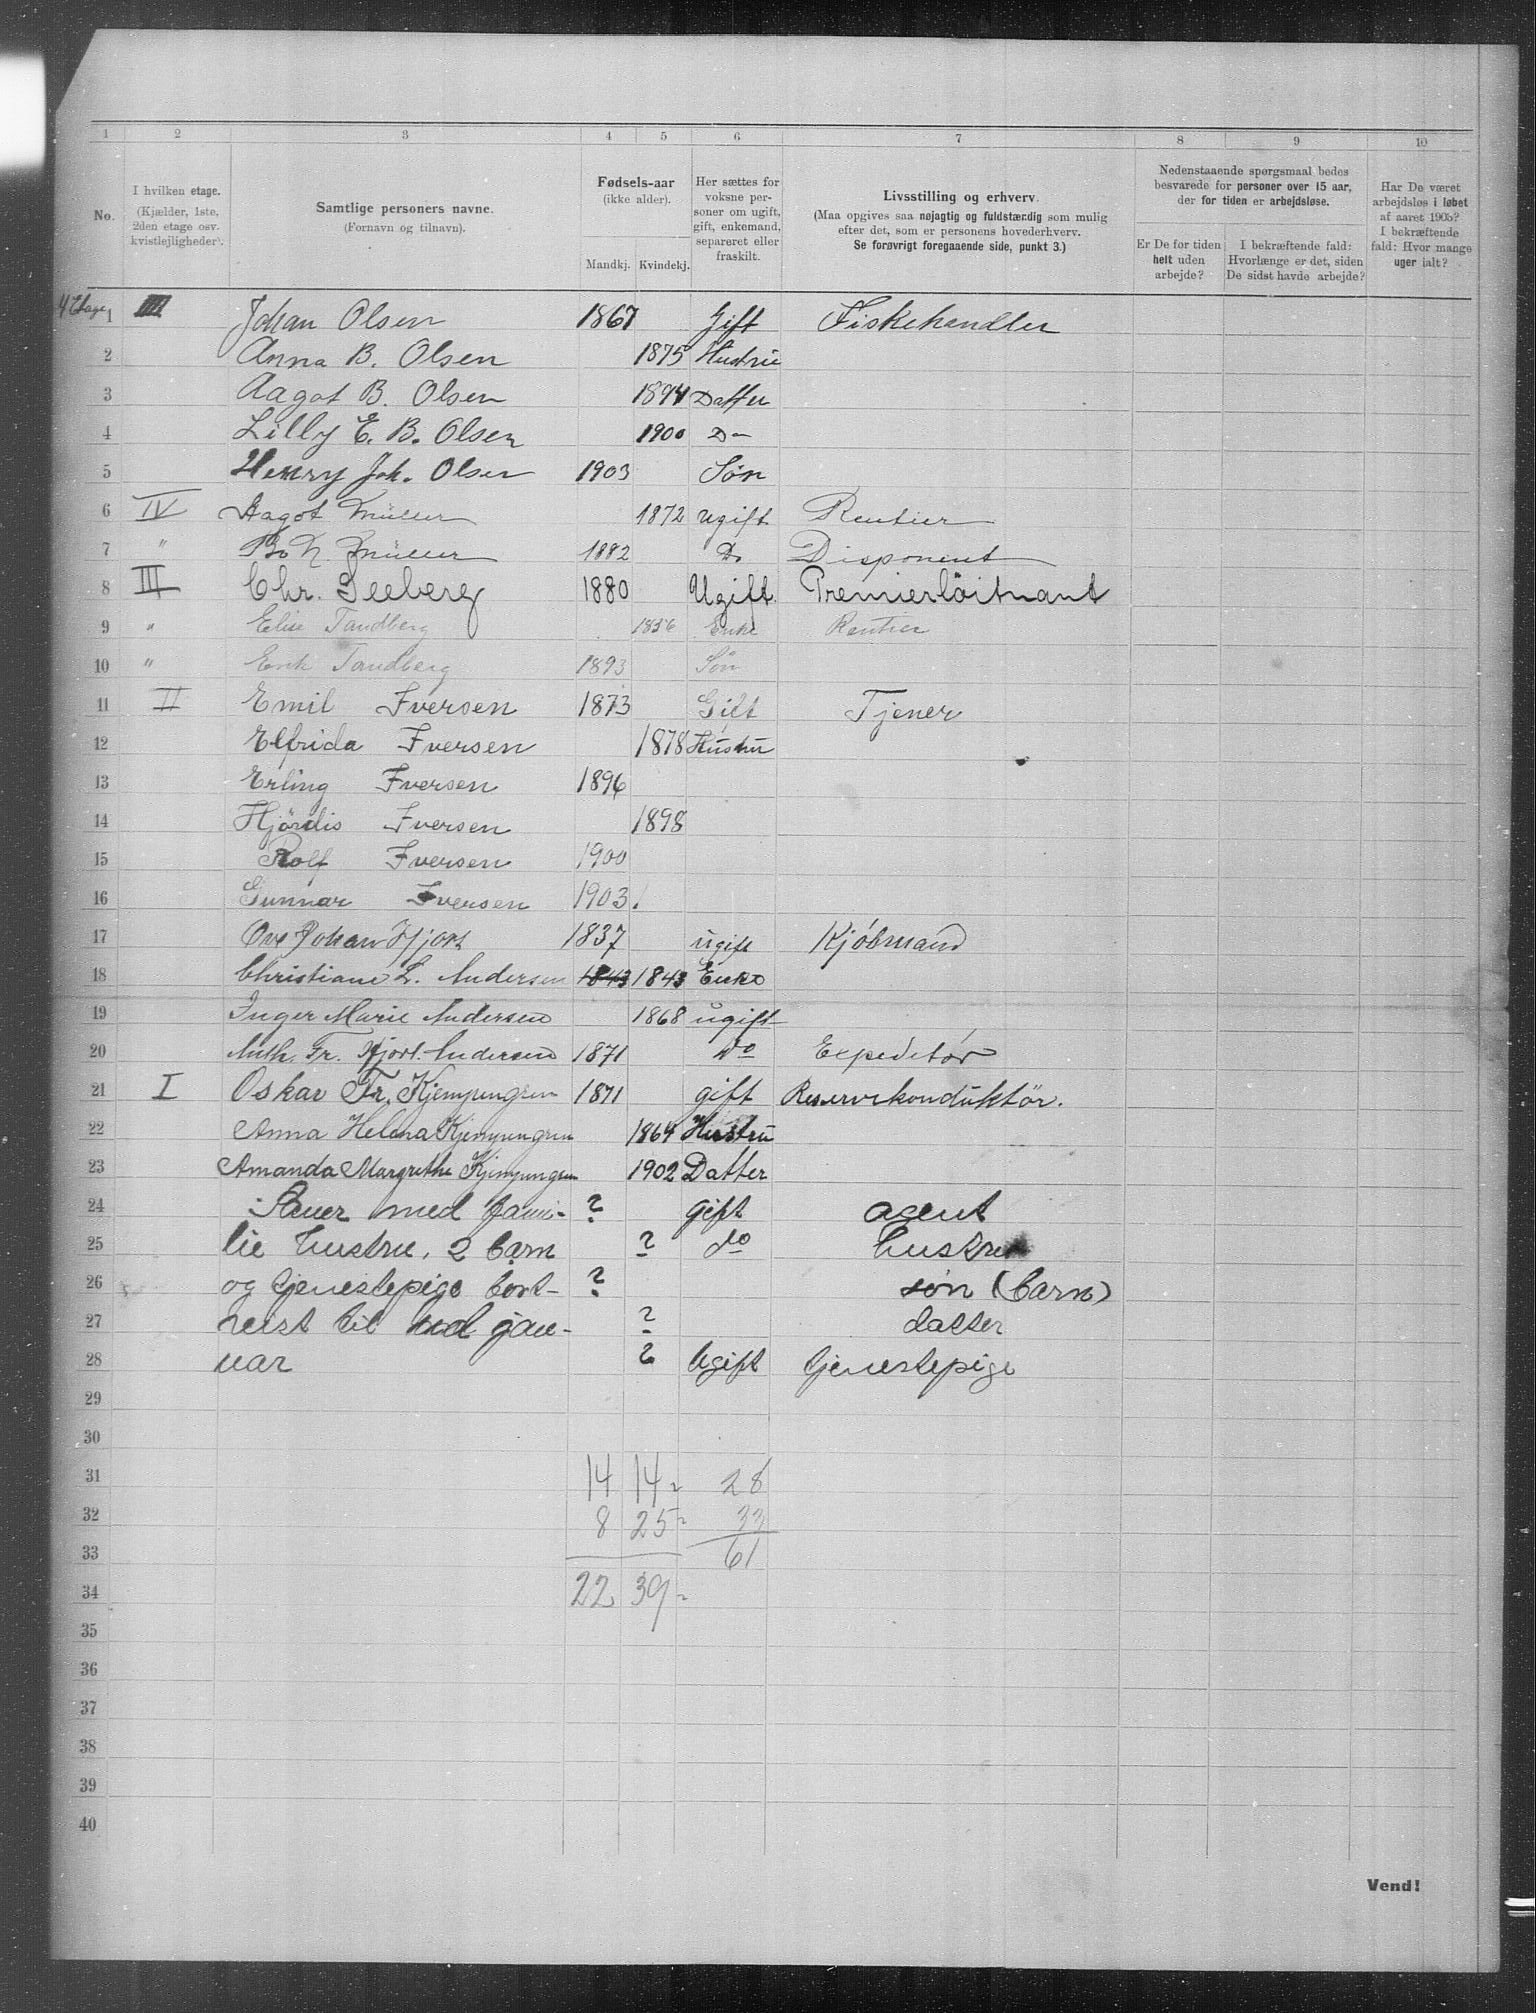 1 2 3 4 5 6 7 8 9 10
No.
I hvilken etage.
(Kjælder, 1ste,
2den etage osv.
kvistlejligheder).
Samtlige personers navne.
(Fornavn og tilnavn).
Fødsels-aar
(ikke alder).
Mandkj. Kvindekj.
Her sættes for
voksne per-
soner om ugift,
gift, enkemand,
separeret eller
fraskilt.
Livsstilling og erhverv.
(Maa opgives saa nøjagtig og fuldstændig som mulig
efter det, som er personens hovederhverv.
Se forøvrigt foregaaende side, punkt 3.)
Nedenstaaende spørgsmaal bedes
besvarede for personer over 15 aar,
der for tiden er arbejdsløse.
Er De for tiden
helt uden
arbejde?
I bekræftende fald:
Hvorlænge er det, siden
De sidst havde arbejde?
Har De været
arbejdsløs i løbet
af aaret 1903?
I bekræftende
fald: Hvor mange
uger ialt?
4 Etage 1 IIII Johan Olsen 1867 Gift Fiskehandler
2 Anna B. Olsen 1875 Hustru
3 Aagot B. Olsen 1894 Datter
4 Lilly E. B. Olsen 1900 D—
5 Henry Joh. Olsen 1903 Søn
6 IV Aagot Müller 1872 Ugift Rentier
7 " Müller 1882 Do Disponent
8 III Chr. Seeberg 1880 Ugift. Premierløitnant
9 " Elise Tandberg 1856 Enke Rentier
10 " Erik Tandberg 1893 Søn
11 II Emil Iversen 1873 Gift Tjener
12 Elfrida Iversen 1878 Hustru
13 Erling Iversen 1896
14 Hjördis Iversen 1898
15 Rolf Iversen 1900
16 Gunnar Iversen 1903.
17 Ove Johan Hjort 1837 ugift Kjøbmand
18 Christiane L. Andersen 1843 1843 Enke
19 Inger Marie Andersen 1868 ugift
20 Anth. Fr. Hjort-Andersen 1871 do Expeditør
21 I Oskar Fr. Kjempengren 1871 gift Reservekonduktör.
22 Anna Helena Kjempengren 1864 Hustru
23 Amanda Margrethe Kjempengren 1902 Datter
24 med fami- ? gift agent
25 lie hustru, 2 barn ? do hustru
26 og tjenestepige bort- ? søn (barn)
27 reist til ud jan- ? datter
28 uar ? Ugift tjenestepige
29
30
31 14 14 - 28
32 8 25 - 33
33 61
34 22 39 -
35
36
37
38
39
40
Vend!